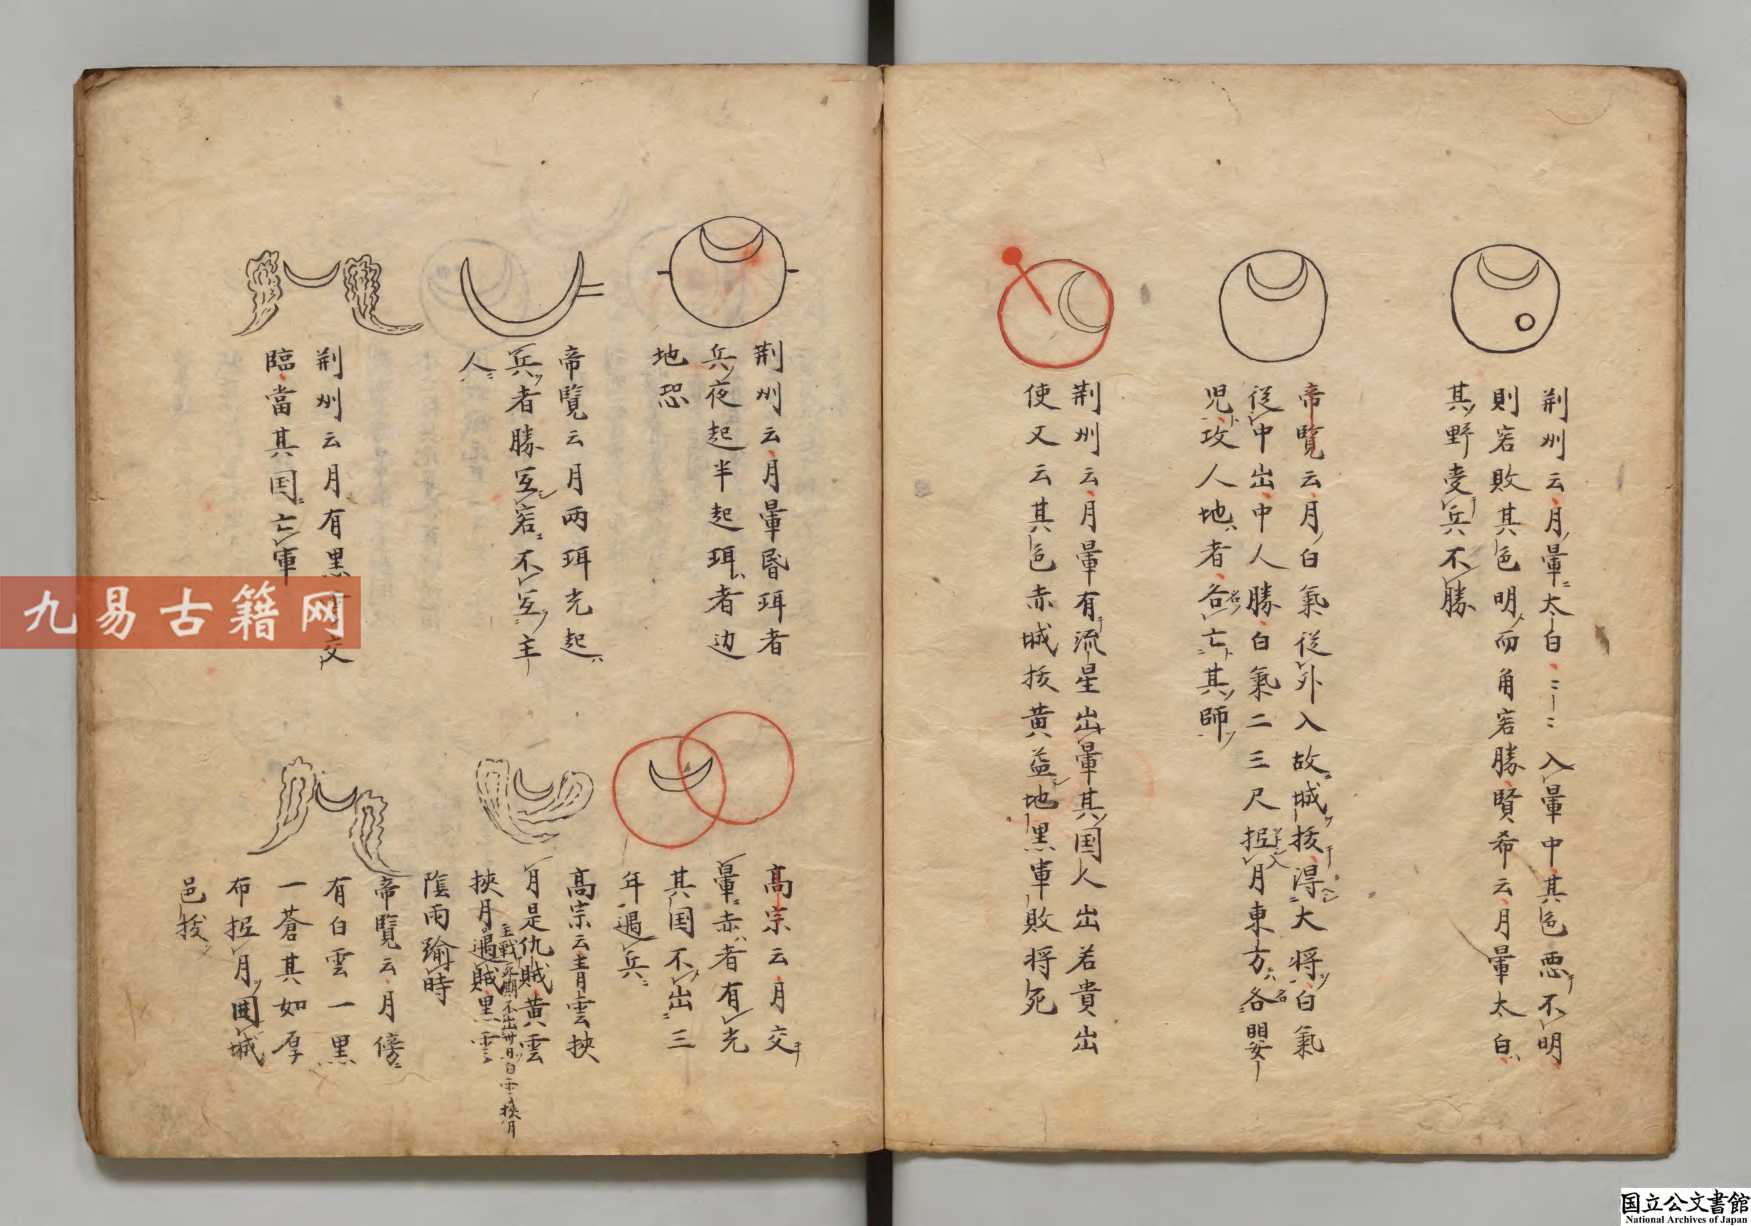 荆州云月暈太白〻〻入暈中其色悪不明
則客敗其色明而角客勝賢希云月暈太白
其野受兵不勝
帝覧云月白氣従外入故城抜得大将白氣
従中出中人勝白氣二三尺抵月東方各嬰
児攻人地者各亡其師
荆州云月暈有流星出暈其国人出若貴出
使又云其色赤城抜黄益地黒軍敗将死
荆州云月暈昏珥者
兵夜起半起珥者边
地恐
帝覧云月両珥光起
兵者勝互客不互主
人
荆州云月有黒
交
臨當其国亡軍
高宗云月交
暈赤者有光
其国不出三
年遇兵
高宗云青雲挟
月是仇賊黄雲
主戦
期不出卅日白雲挟月
挟月遇賊黒雲
陰雨踰時
帝覧云月傍
有白雲一黒
一蒼其如厚
布抵月囲城
邑抜
九易古籍网
国立公文書館
National Archives of Japan